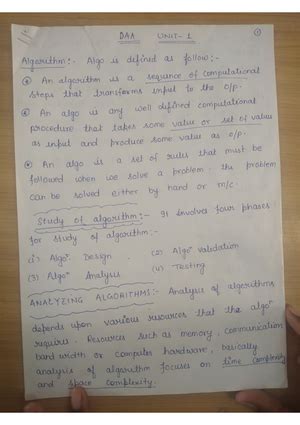 DAA UNIT-1 ①
Algorithm:- Algo is defined as follow:-
* An algorithm is a sequence of computational
steps that transforms input to the o/p.
* An algo is any well defined computational
procedure that takes some value or set of value
as input and produce some value as o/p.
* An algo is a set of rules that must be
followed when we solve a problem. The problem
can be solved either by hand or m/c.
Study of algorithm:- It involve four phases
for study of algorithm:-
(1) Algoᵐ Design. (2) Algoᵐ Validation
(3) Algoᵐ Analysis (4) Testing
ANALYZING ALGORITHMS:- Analysis of algorithms
depends upon various resources that the algoᵐ
requires. Resources such as memory, communication
band width or computer hardware, basically
analysis of algorithm focuses on time complexity
and space complexity.